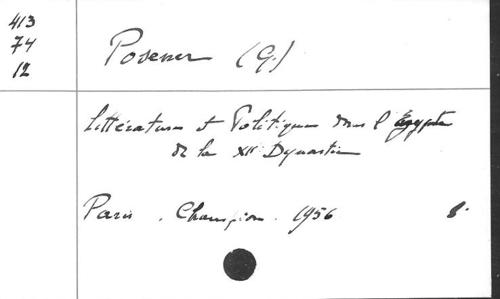 413
74
12
Posener (G.)
Littérature et Politique dans l'Égypte
de la XIIe Dynastie
Paris. Champion. 1956 8°